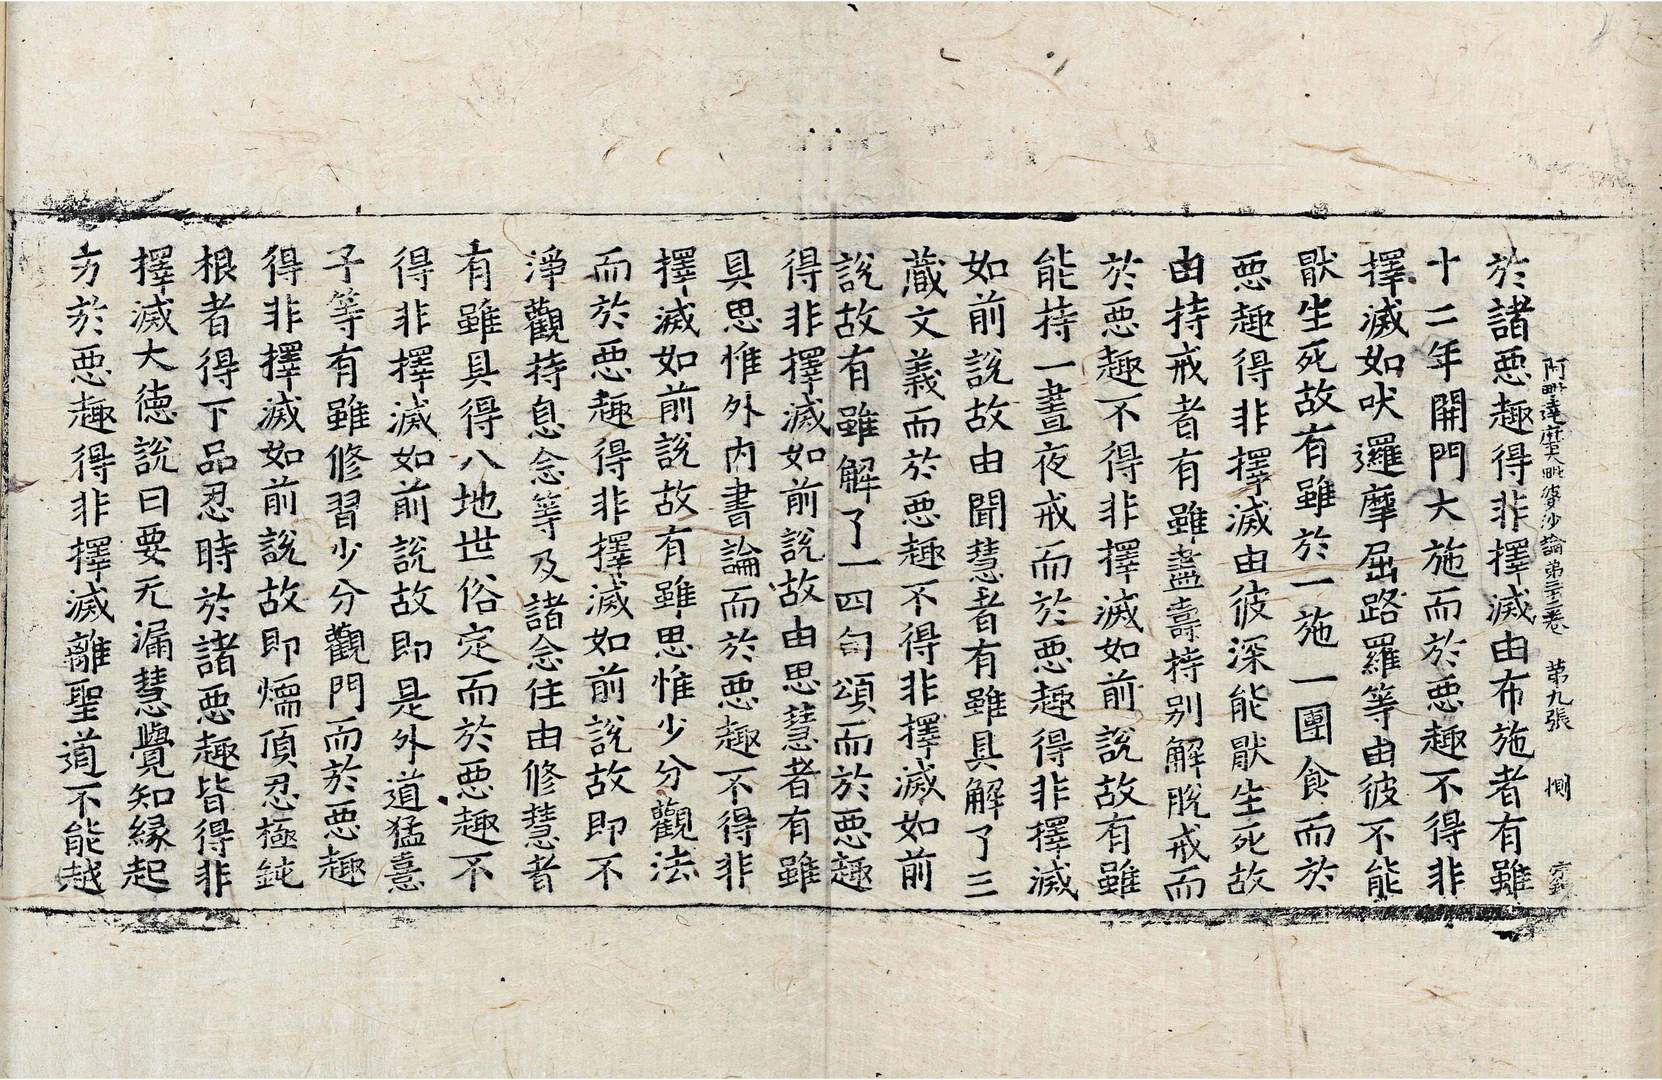 阿毗達磨大毗婆沙論第三十二卷　第九張　惻
於諸惡趣得非擇滅由布施者有雖
十二年開門大施而於惡趣不得非
擇滅如吠邏摩屈路羅等由彼不能
猒生死故有雖於一施一團食而於
惡趣得非擇滅由彼深能猒生死故
由持戒者有雖盡壽持別解脫戒而
於惡趣不得非擇滅如前說故有雖
能持一晝夜戒而於惡趣得非擇滅
如前說故由聞慧者有雖具解了三
藏文義而於惡趣不得非擇滅如前
說故有雖解了一四句頌而於惡趣
得非擇滅如前說故由思慧者有雖
具思惟外內書論而於惡趣不得非
擇滅如前說故有雖思惟少分觀法
而於惡趣得非擇滅如前說故即不
淨觀持息念等及諸念住由修慧者
有雖具得八地世俗定而於惡趣不
得非擇滅如前說故即是外道猛憙
子等有雖修習少分觀門而於惡趣
得非擇滅如前說故即煗頂忍極鈍
根者得下品忍時於諸惡趣皆得非
擇滅大德說曰要无漏慧覺知緣起
方於惡趣得非擇滅離聖道不能越